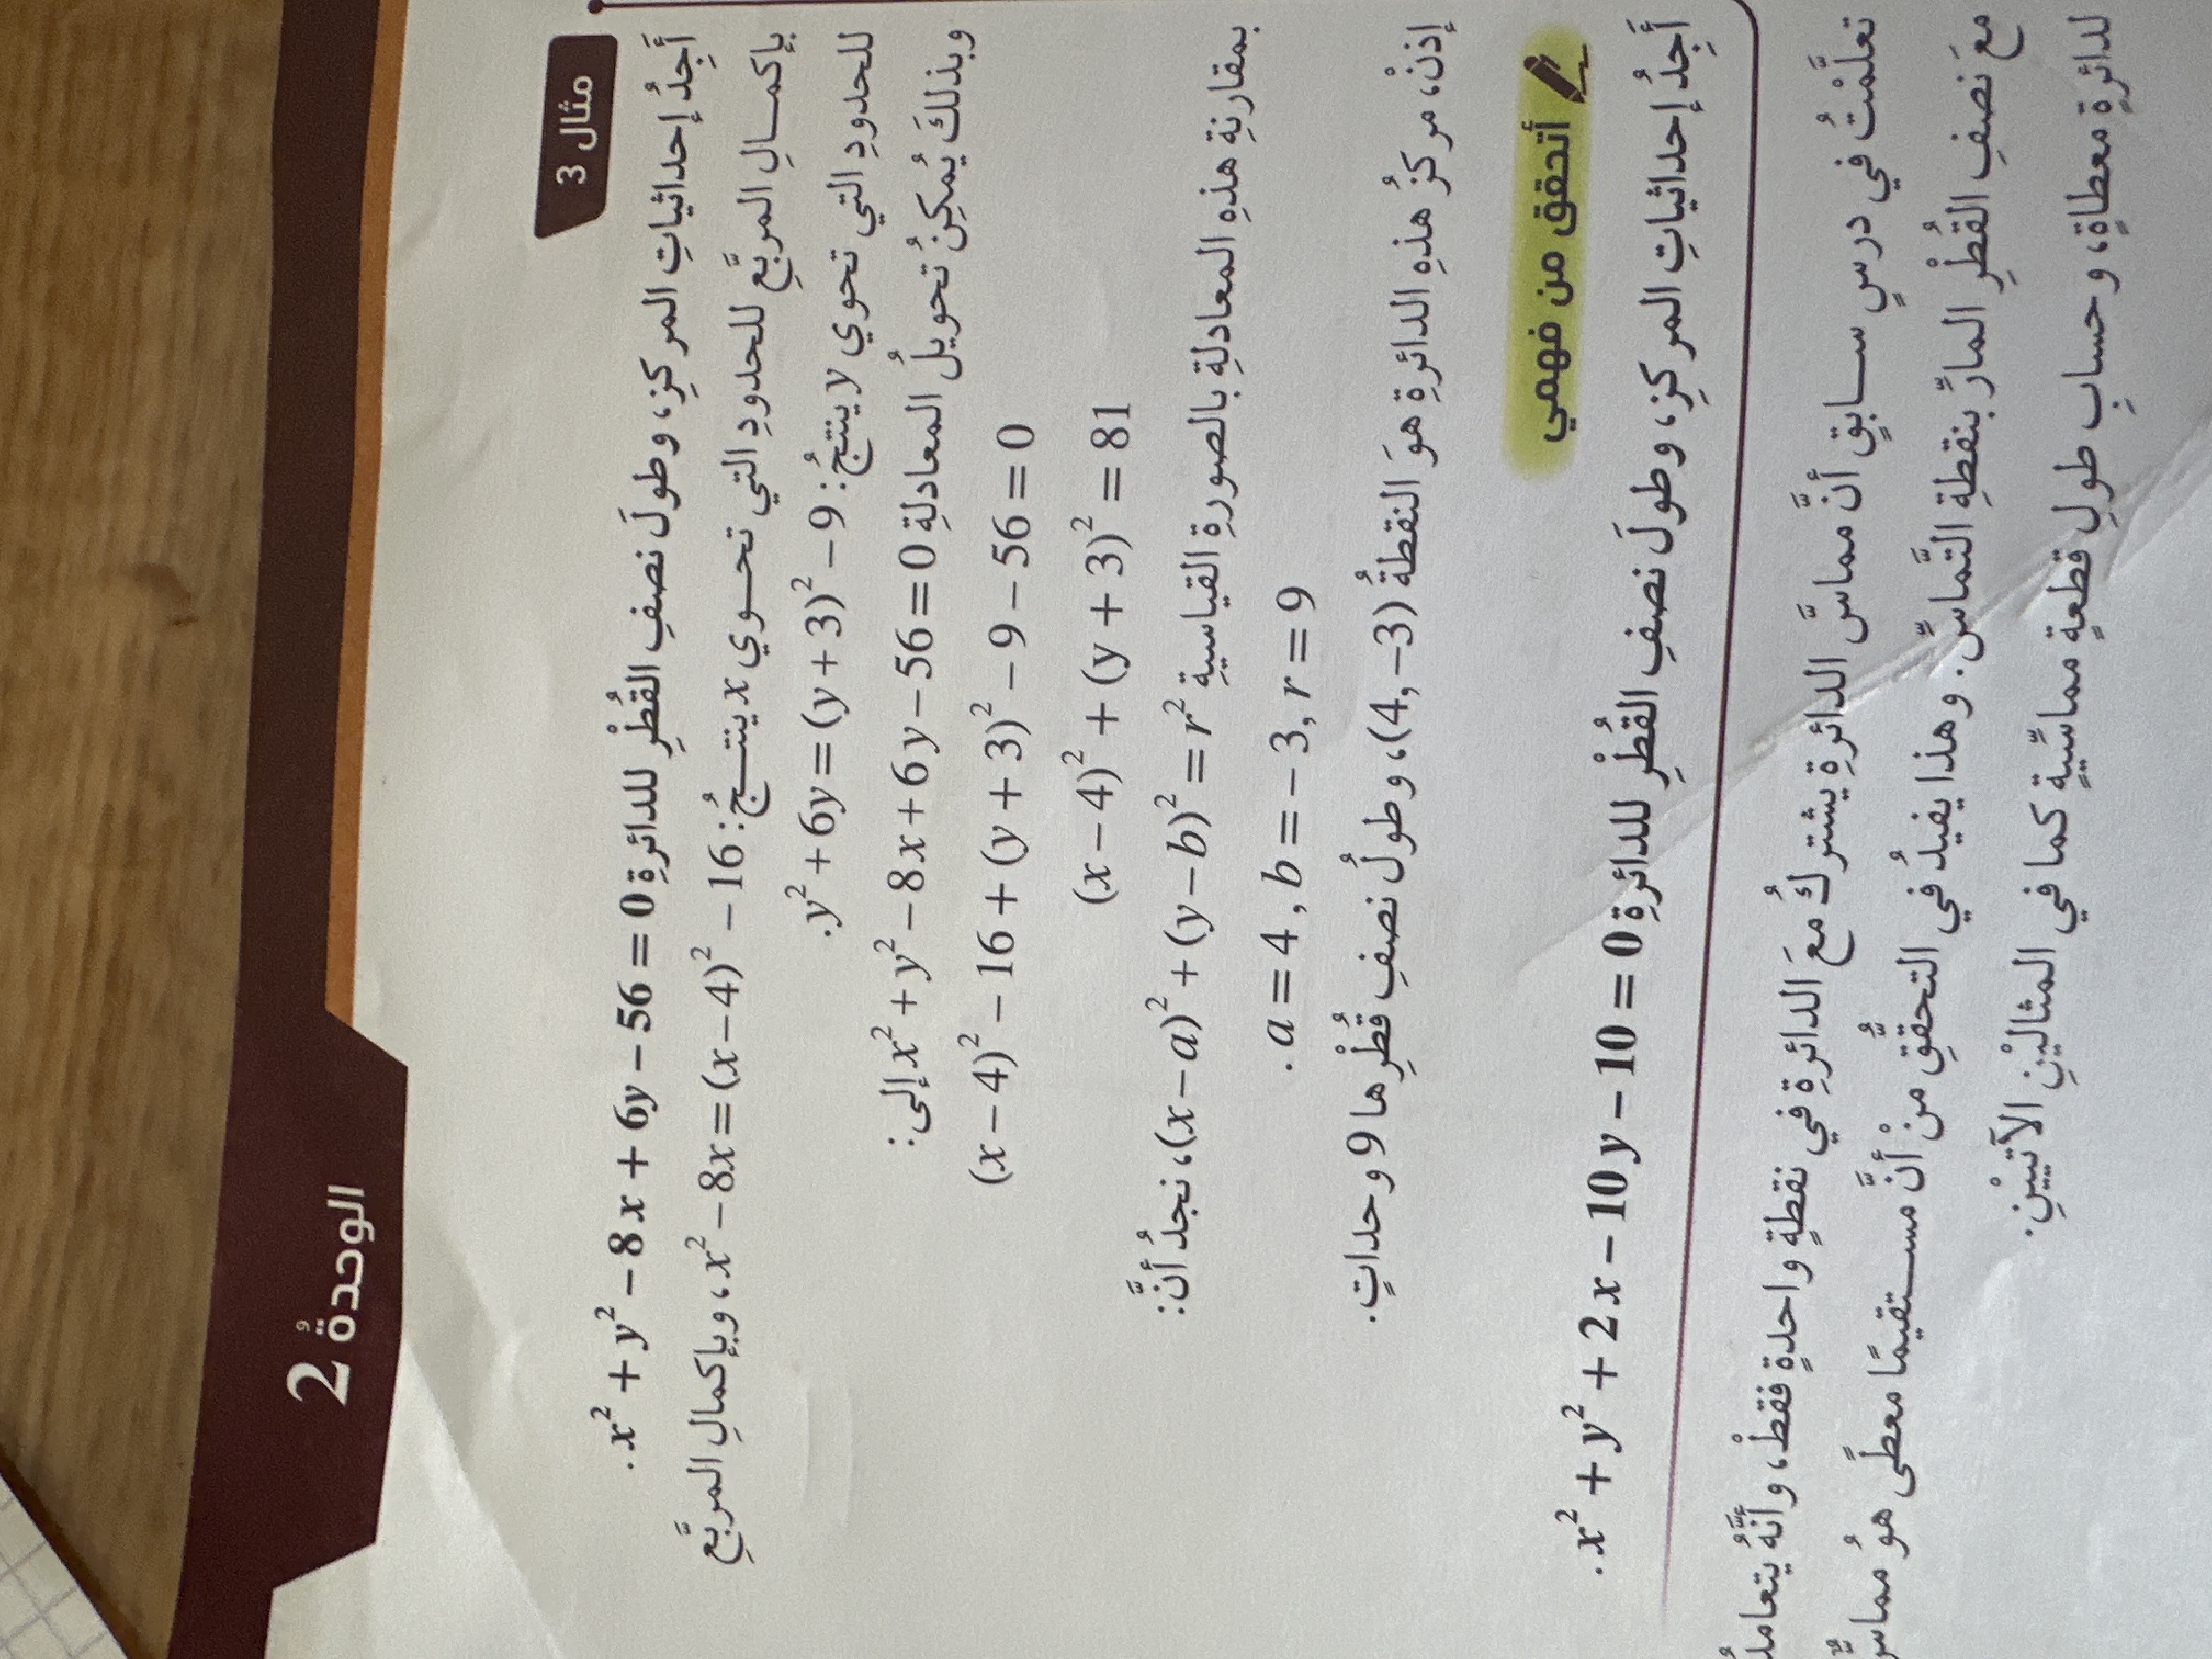 الوحدةُ 2
مثال 3
أَجِدُ إحداثياتِ المركزِ، وطولَ نصفِ القُطْرِ للدائرةِ x² + y² − 8x + 6y − 56 = 0.
بإكمـالِ المربَّعِ للحدودِ التي تحـوي x ينتـجُ: x² − 8x = (x − 4)² − 16، وبإكمالِ المربَّعِ
للحدودِ التي تحوي y ينتجُ: y² + 6y = (y + 3)² − 9.
وبذلكَ يُمكِنُ تحويلُ المعادلةِ x² + y² − 8x + 6y − 56 = 0 إلى:
(x − 4)² − 16 + (y + 3)² − 9 − 56 = 0
(x − 4)² + (y + 3)² = 81
بمقارنةِ هذهِ المعادلةِ بالصورةِ القياسيةِ (x − a)² + (y − b)² = r²، نجدُ أنَّ:
a = 4 , b = −3, r = 9.
إذنْ، مركزُ هذهِ الدائرةِ هوَ النقطةُ (4, −3)، وطولُ نصفِ قُطْرِها 9 وحداتٍ.
أتحقق من فهمي
أَجِدُ إحداثياتِ المركزِ، وطولَ نصفِ القُطْرِ للدائرةِ x² + y² + 2x − 10y − 10 = 0.
تعلَّمْتُ في درسٍ سـابقٍ أنَّ مماسَّ الدائرةِ يشتركُ معَ الدائرةِ في نقطةٍ واحدةٍ فقطْ، وأنَّهُ يتعامدُ
معَ نصفِ القُطْرِ المارِّ بنقطةِ التَّماسِّ. وهذا يفيدُ في التحقُّقِ منْ أنَّ مسـتقيمًا معطًى هوُ مماسٌّ
لدائرةٍ معطاةٍ، وحسابِ طولِ قطعةٍ مماسِّيةٍ كما في المثاليْنِ الآتييْنِ.